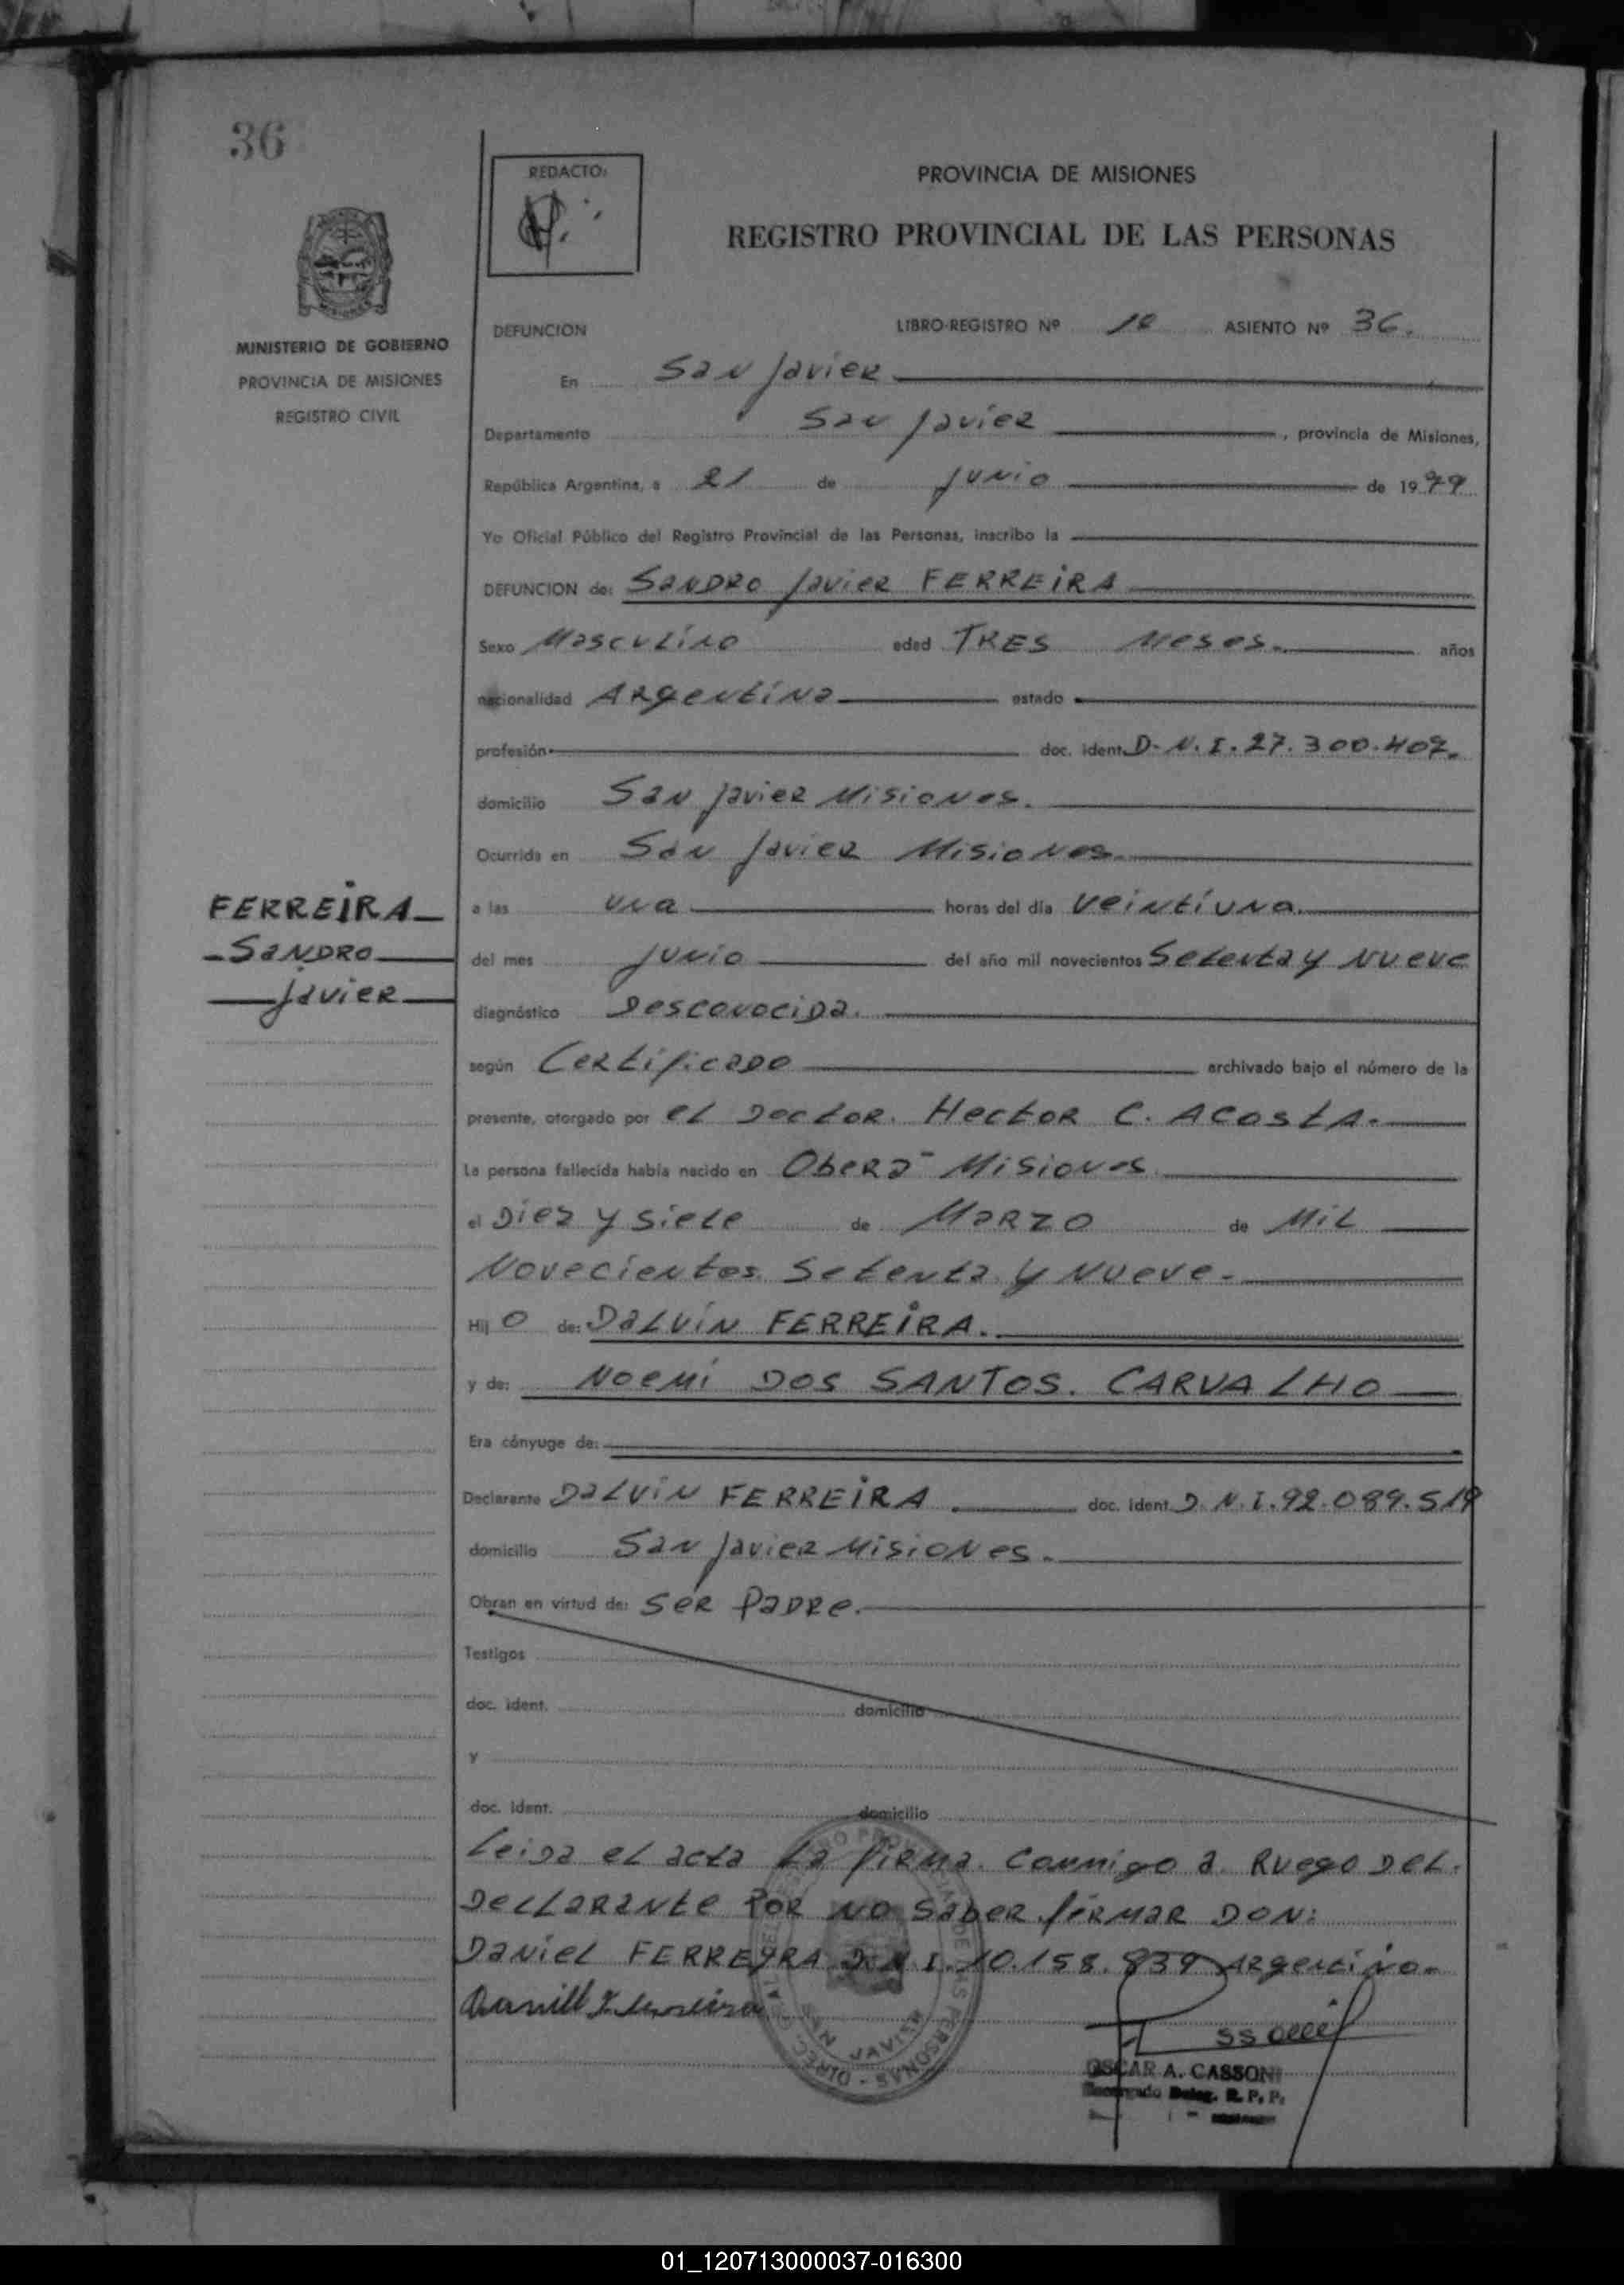 36
REDACTO:
PROVINCIA DE MISIONES
REGISTRO PROVINCIAL DE LAS PERSONAS
MISIONES
MINISTERIO DE GOBIERNO
PROVINCIA DE MISIONES
REGISTRO CIVIL
DEFUNCION LIBRO-REGISTRO Nº ASIENTO Nº 36.
En San Javier
Departamento San Javier, provincia de Misiones,
República Argentina, a 21 de Junio de 1979
Yo Oficial Público del Registro Provincial de las Personas, inscribo la
DEFUNCION de: SANDRO Javier FERREIRA
Sexo Masculino edad TRES Meses. años
nacionalidad Argentina estado
profesión doc. ident. D.N.I. 27.300.407.
domicilio San Javier Misiones.
Ocurrida en San Javier Misiones.
FERREIRA
SANDRO
Javier
a las una horas del día veintiuna.
del mes Junio del año mil novecientos Setenta y nueve
diagnóstico Desconocida.
según Certificado archivado bajo el número de la
presente, otorgado por el Doctor. Hector C. Acosta.
La persona fallecida había nacido en Oberá Misiones.
el Diez y siete de Marzo de Mil
Novecientos Setenta y Nueve.
Hij o de: Dalvin FERREIRA.
y de: Noemi DOS SANTOS. CARVALHO
Era cónyuge de:
Declarante Dalvin FERREIRA doc. ident. D.N.I. 92.089.519
domicilio San Javier Misiones.
Obran en virtud de: Ser Padre.
Testigos
doc. ident. domicilio
y
doc. ident. domicilio
Leida el acta La firma. Conmigo a Ruego Del.
Declarante Por no saber firmar Don:
Daniel FERREYRA D.N.I. 10.158.839 Argentino.
OSCAR A. CASSONI
Encargado Deleg. R. P. P.
SAN JAVIER
01_120713000037-016300